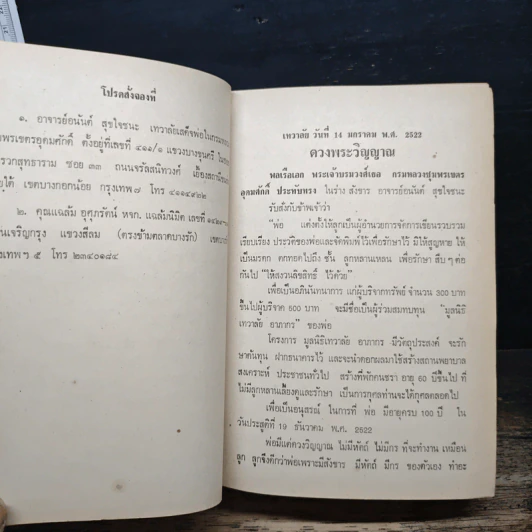 โปรดสั่งจองที่
๑. อาจารย์อนันต์ สุขใจชนะ เทวาลัยเสด็จพ่อในกรมหลวง
พรเขตรอุดมศักดิ์ ตั้งอยู่ที่เลขที่ ๔๑๑/๑ แขวงบางขุนศรี
รวกสุทธาราม ซอย ๓๓ ถนนจรัลสนิทวงศ์
ได้ เขตบางกอกน้อย กรุงเทพ ๗ โทร ๔๑๑๔๙๒๒
๒. คุณแฉล้ม อุศุภรัตน์ หจก. แฉล้มนิมิต เลขที่
นเจริญกรุง แขวงสีลม (ตรงข้ามตลาดบางรัก)
งเทพ ๆ ๕ โทร ๒๓๔๐๑๘๔
เทวาลัย วันที่ 14 มกราคม พ.ศ. 2522
ดวงพระวิญญาณ
พลเรือเอก พระเจ้าบรมวงศ์เธอ กรมหลวงชุมพรเขตร
อุดมศักดิ์ ประทับทรง ในร่าง สังขาร อาจารย์อนันต์ สุขใจชนะ
รับสั่งกับข้าพเจ้าว่า
"พ่อ แต่งตั้งให้ลูกเป็นผู้อำนวยการจัดการเขียนรวบรวม
เรียบเรียง ประวัติของพ่อและจัดพิมพ์ไว้เพื่อรักษาไว้ มิให้สูญหาย ให้
เป็นมรดก ตกทอดไปถึง ชั้น ลูกหลานเหลน เพื่อรักษา สืบ ๆ ต่อ
กันไป "ให้สงวนลิขสิทธิ์ ไว้ด้วย"
เพื่อเป็นอภินันทนาการ แก่ผู้บริจาคทรัพย์ จำนวน 300 บาท
ขึ้นไปผู้บริจาค 500 บาท จะมีชื่อเป็นผู้ร่วมสมทบทุน "มูลนิธิ
เทวาลัย อาภากร" ของพ่อ
โครงการ มูลนิธิเทวาลัย อาภากร มีวัตถุประสงค์ จะรัก
ษาต้นทุน ฝากธนาคารไว้ และจะนำดอกผลมาใช้สร้างสถานพยาบาล
สงเคราะห์ ประชาชนทั่วไป สร้างที่พักคนชรา อายุ 60 ปีขึ้นไป ที่
ไม่มีลูกหลานเลี้ยงดูและรักษา เป็นการกุศลท่านจะได้กุศลตลอดไป
เพื่อเป็นอนุสรณ์ ในการที่ พ่อ มีอายุครบ 100 ปี ใน
วันประสูติที่ 19 ธันวาคม พ.ศ. 2522
พ่อมีแต่ดวงวิญญาณ ไม่มีหัตถ์ ไม่มีกร ที่จะทำงาน เหมือน
ลูก ลูกจึงดีกว่าพ่อเพราะมีสังขาร มีหัตถ์ มีกร ของตัวเอง ทำอะ